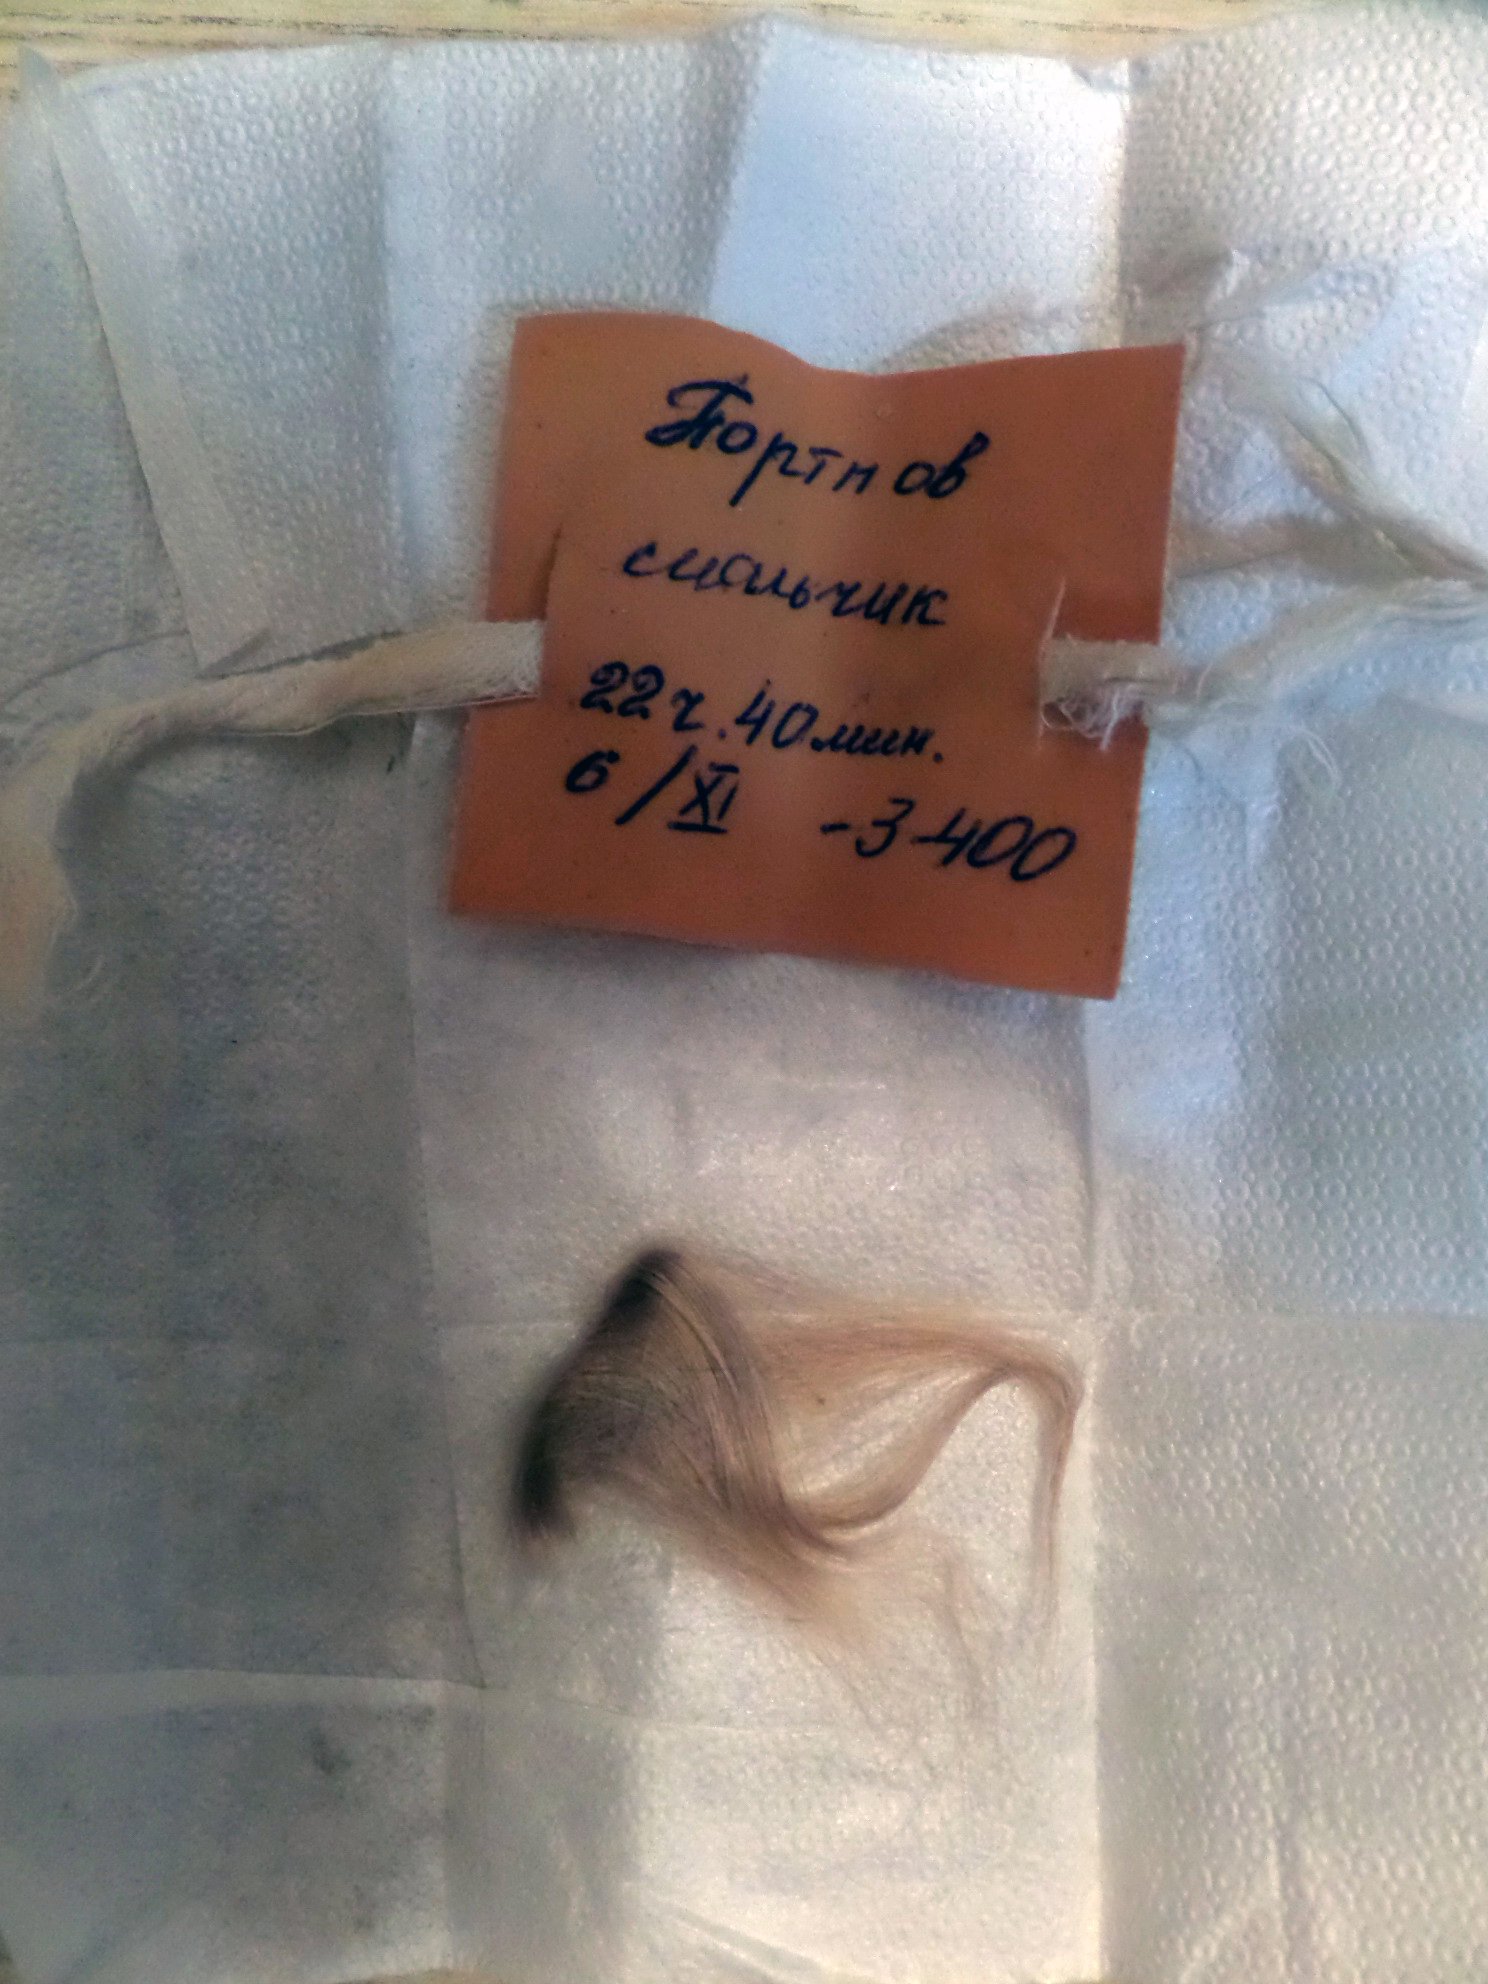 Портнов
мальчик
22ч.40мин.
6/XI -3400